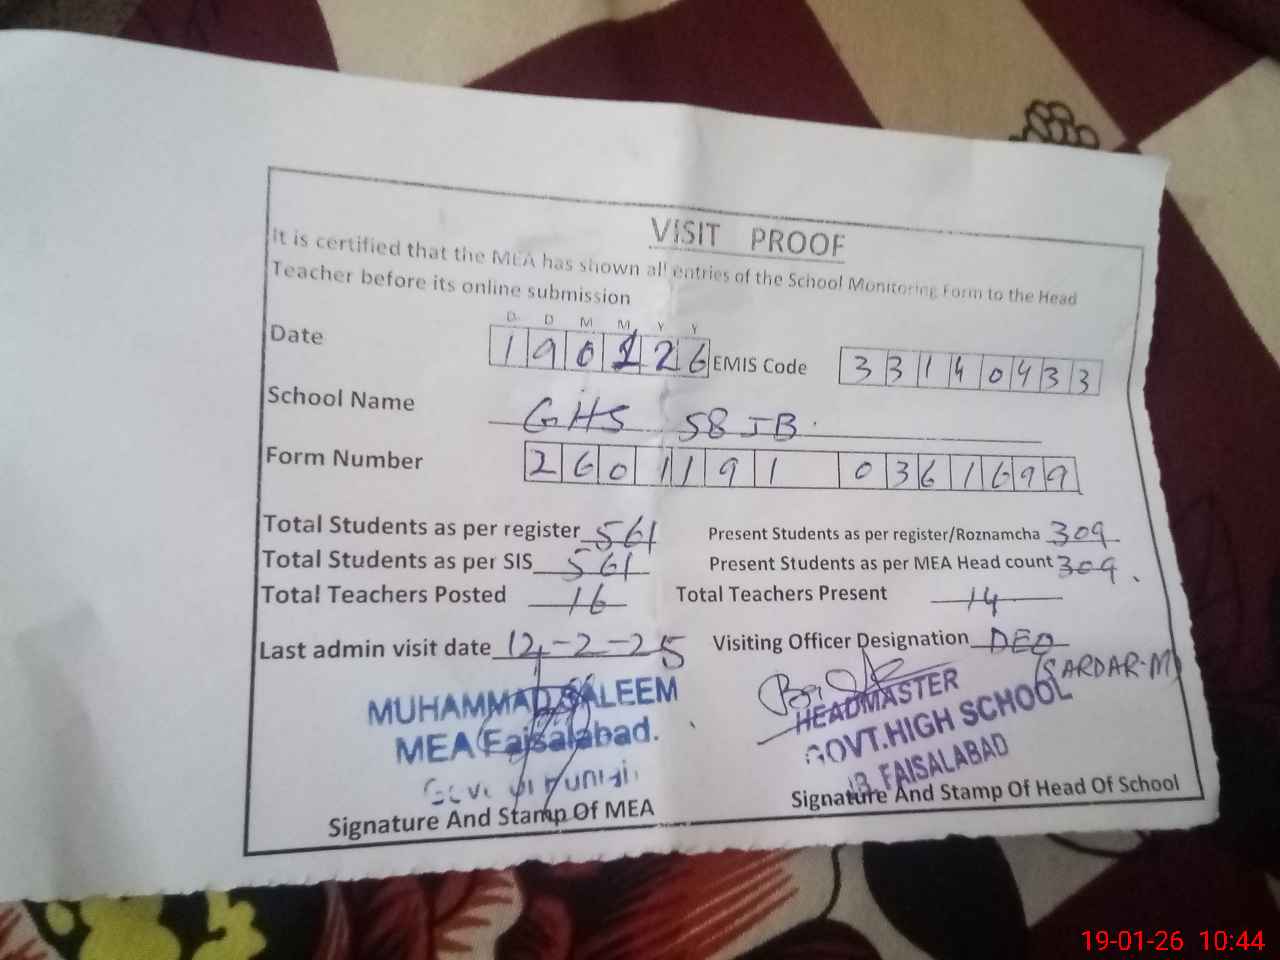 VISIT PROOF
It is certified that the MEA has shown all entries of the School Monitoring Form to the Head
Teacher before its online submission
D D M M Y Y
Date 190126 EMIS Code 33140433
School Name GHS 58 JB
Form Number 2601191 0361699
Total Students as per register 561 Present Students as per register/Roznamcha 309
Total Students as per SIS 561 Present Students as per MEA Head count 309
Total Teachers Posted 16 Total Teachers Present 14
Last admin visit date 12-2-25 Visiting Officer Designation DEO
(SARDAR-M)
MUHAMMAD SALEEM
MEA Faisalabad.
HEADMASTER
GOVT.HIGH SCHOOL
JB FAISALABAD
Signature And Stamp Of MEA Signature And Stamp Of Head Of School
19-01-26 10:44